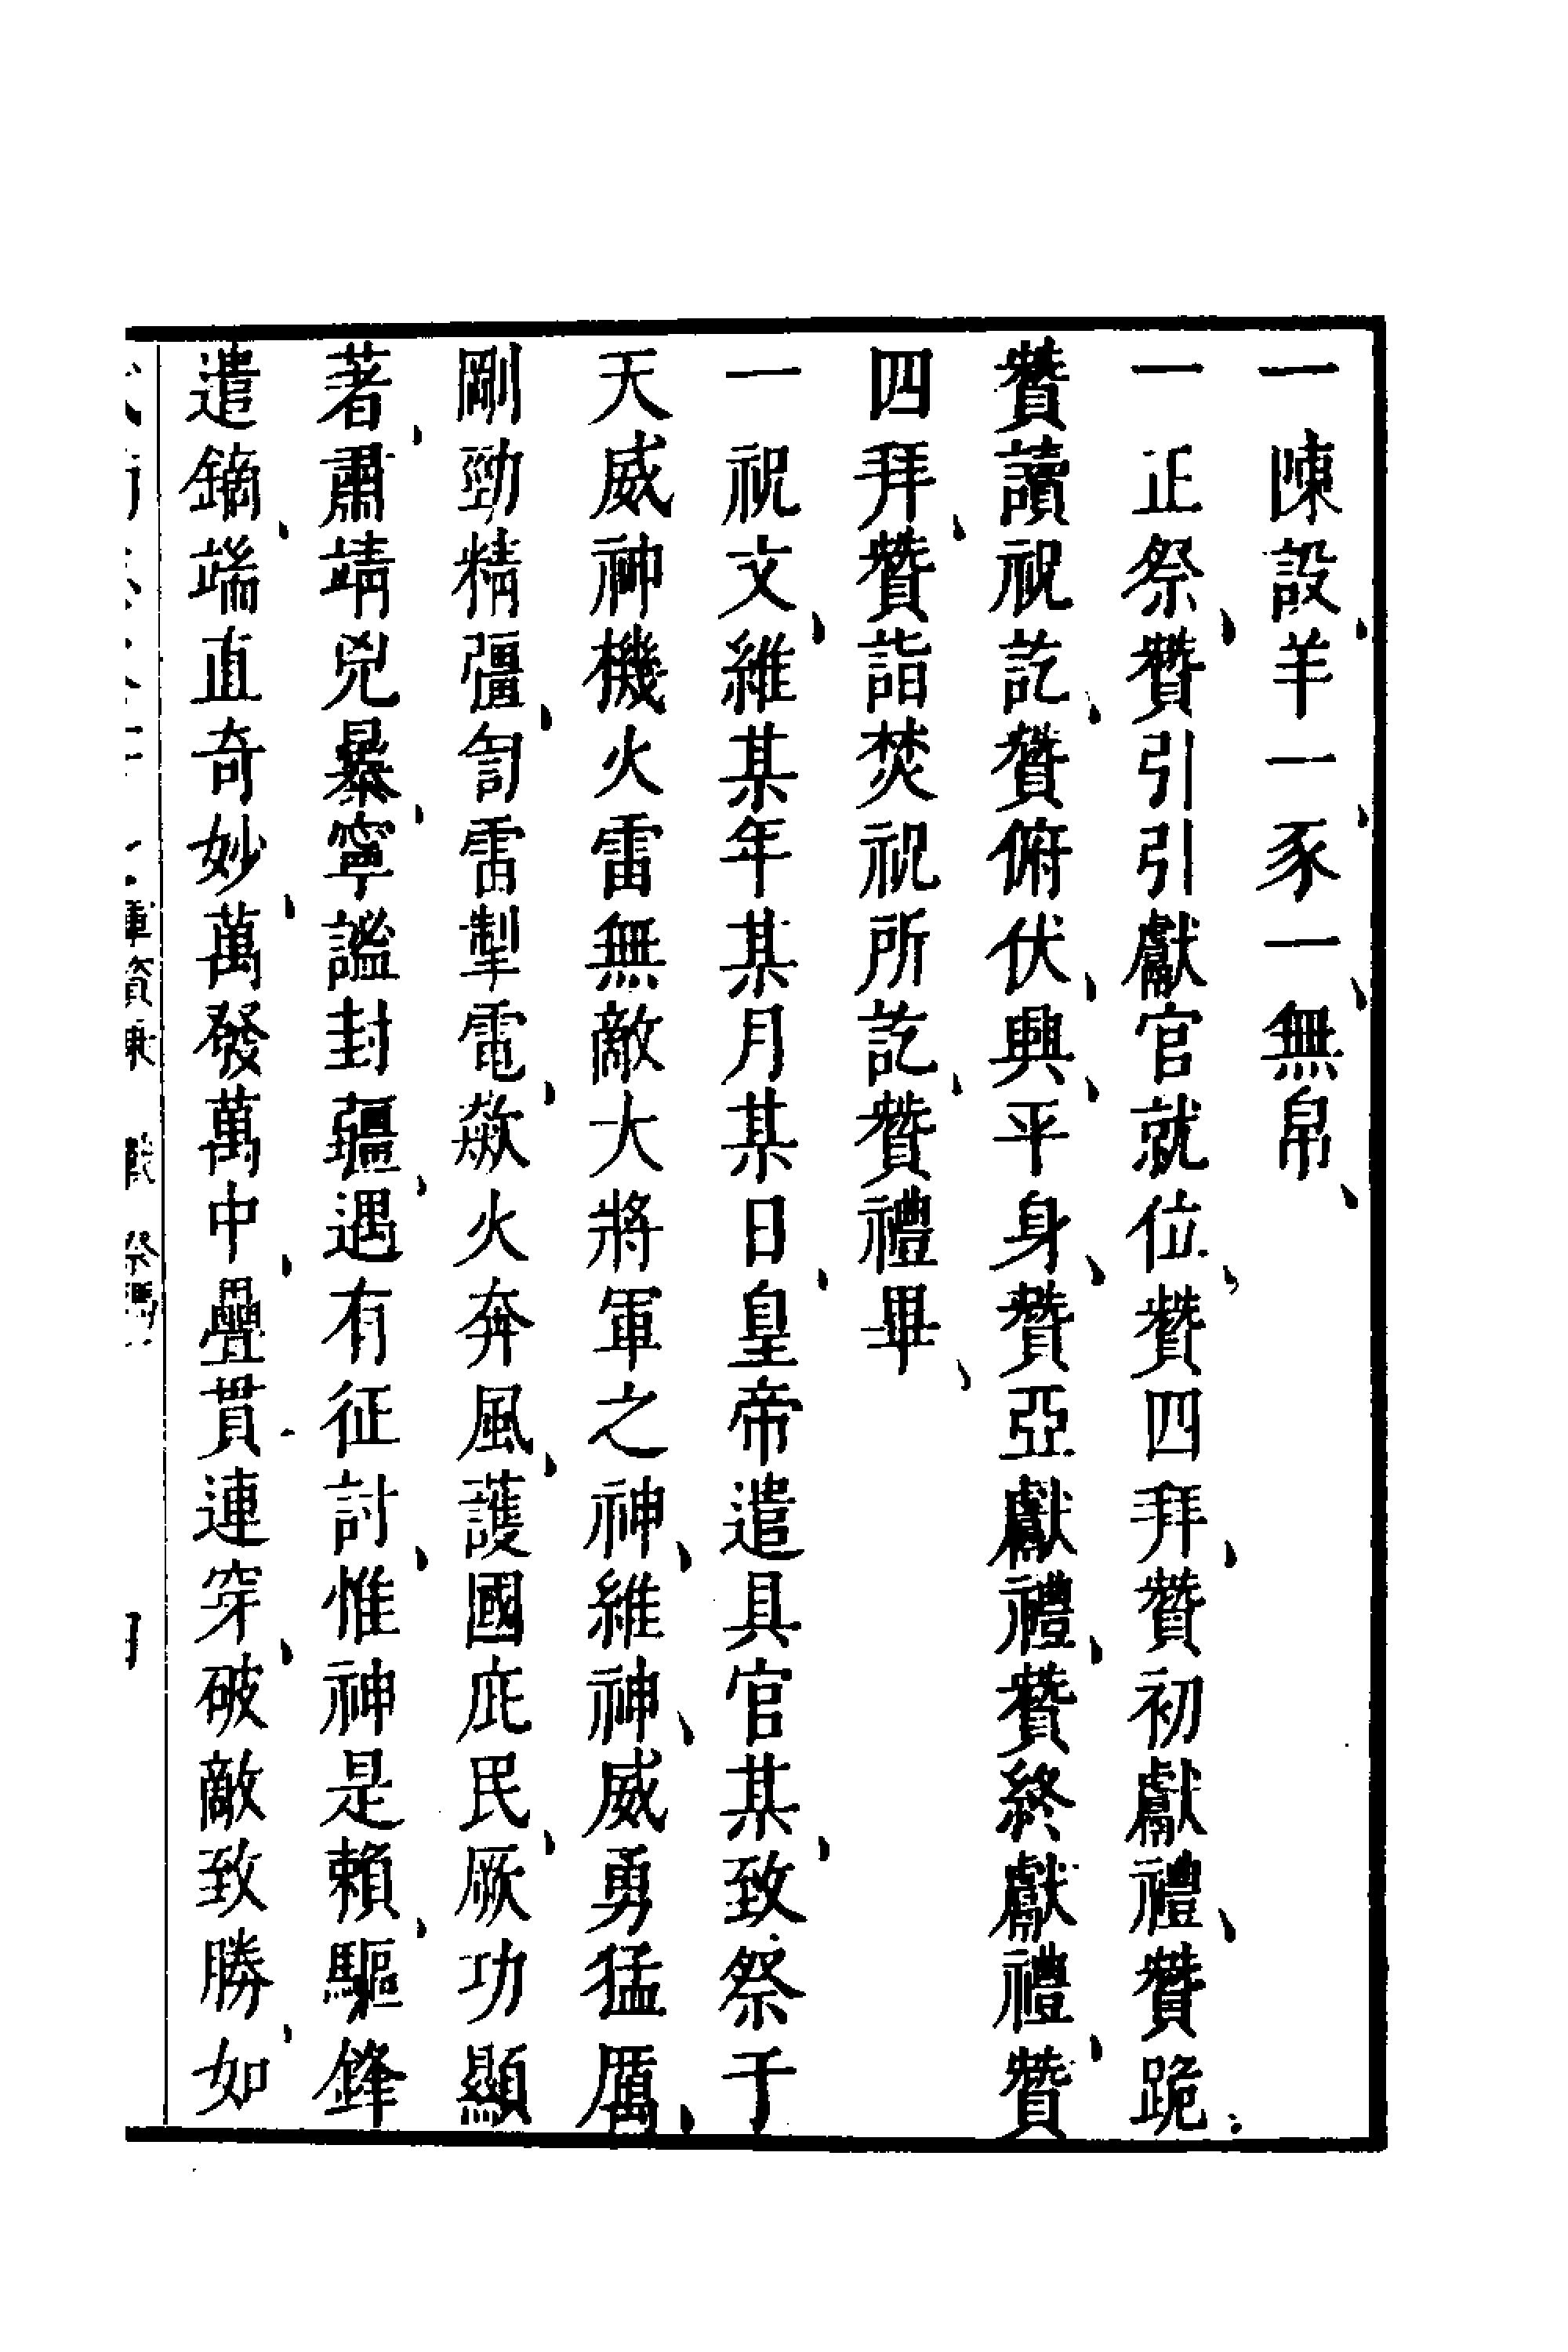 一陳設羊一豕一無帛
一正祭贊引引獻官就位贊四拜贊初獻禮贊跪
贊讀祝訖贊俯伏興平身贊亞獻禮贊終獻禮贊
四拜贊詣焚祝所訖贊禮畢
一祝文維某年某月某日皇帝遣具官某致祭于
天威神機火雷無敵大將軍之神維神威勇猛厲
剛勁精彊訇雷掣電歘火奔風護國庇民厥功顯
著肅靖兇暴寧謐封疆遇有征討惟神是賴驅鋒
遣鏑端直奇妙萬發萬中疊貫連穿破敵致勝如
軍資乘 戰 祭禡